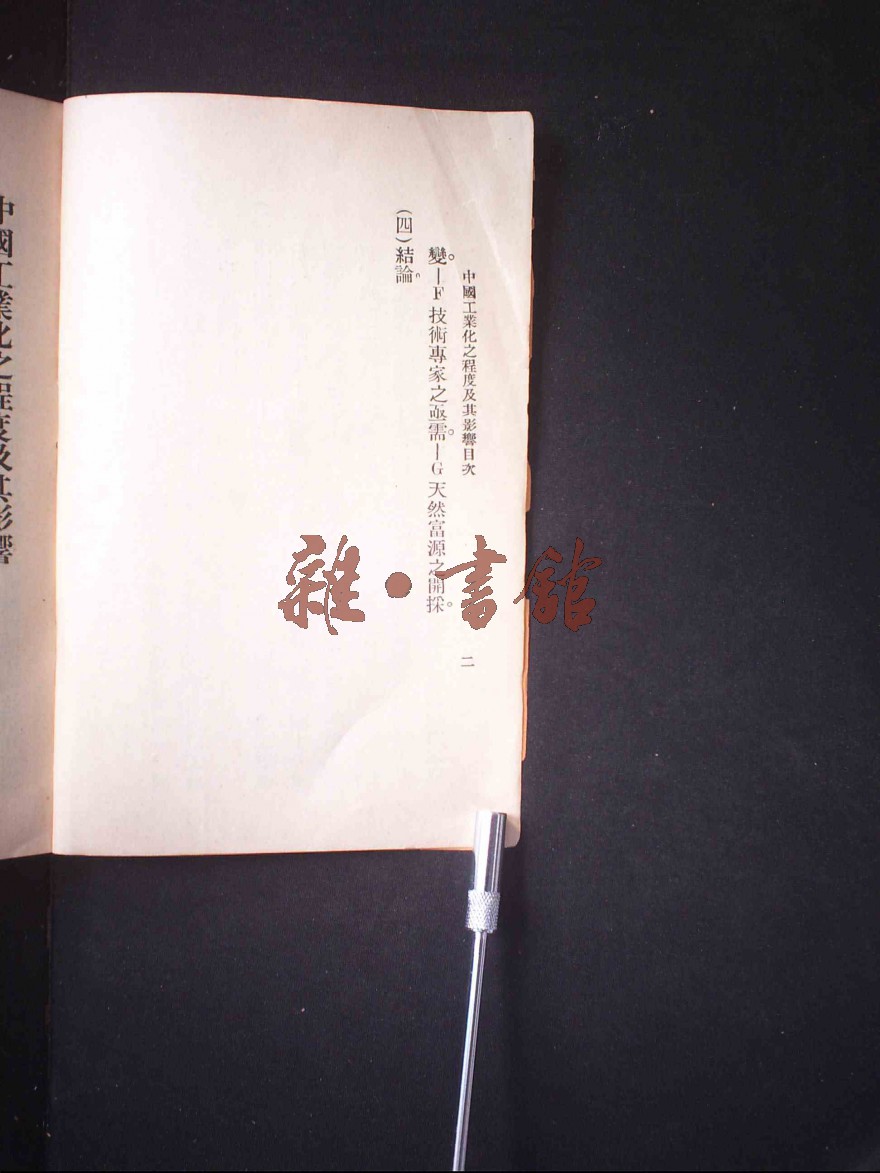 中國工業化之程度及其影響目次 二
變。—F技術專家之亟需。—G天然富源之開採。
(四)結論。
中國工業化之程度及其影響
雜•書館